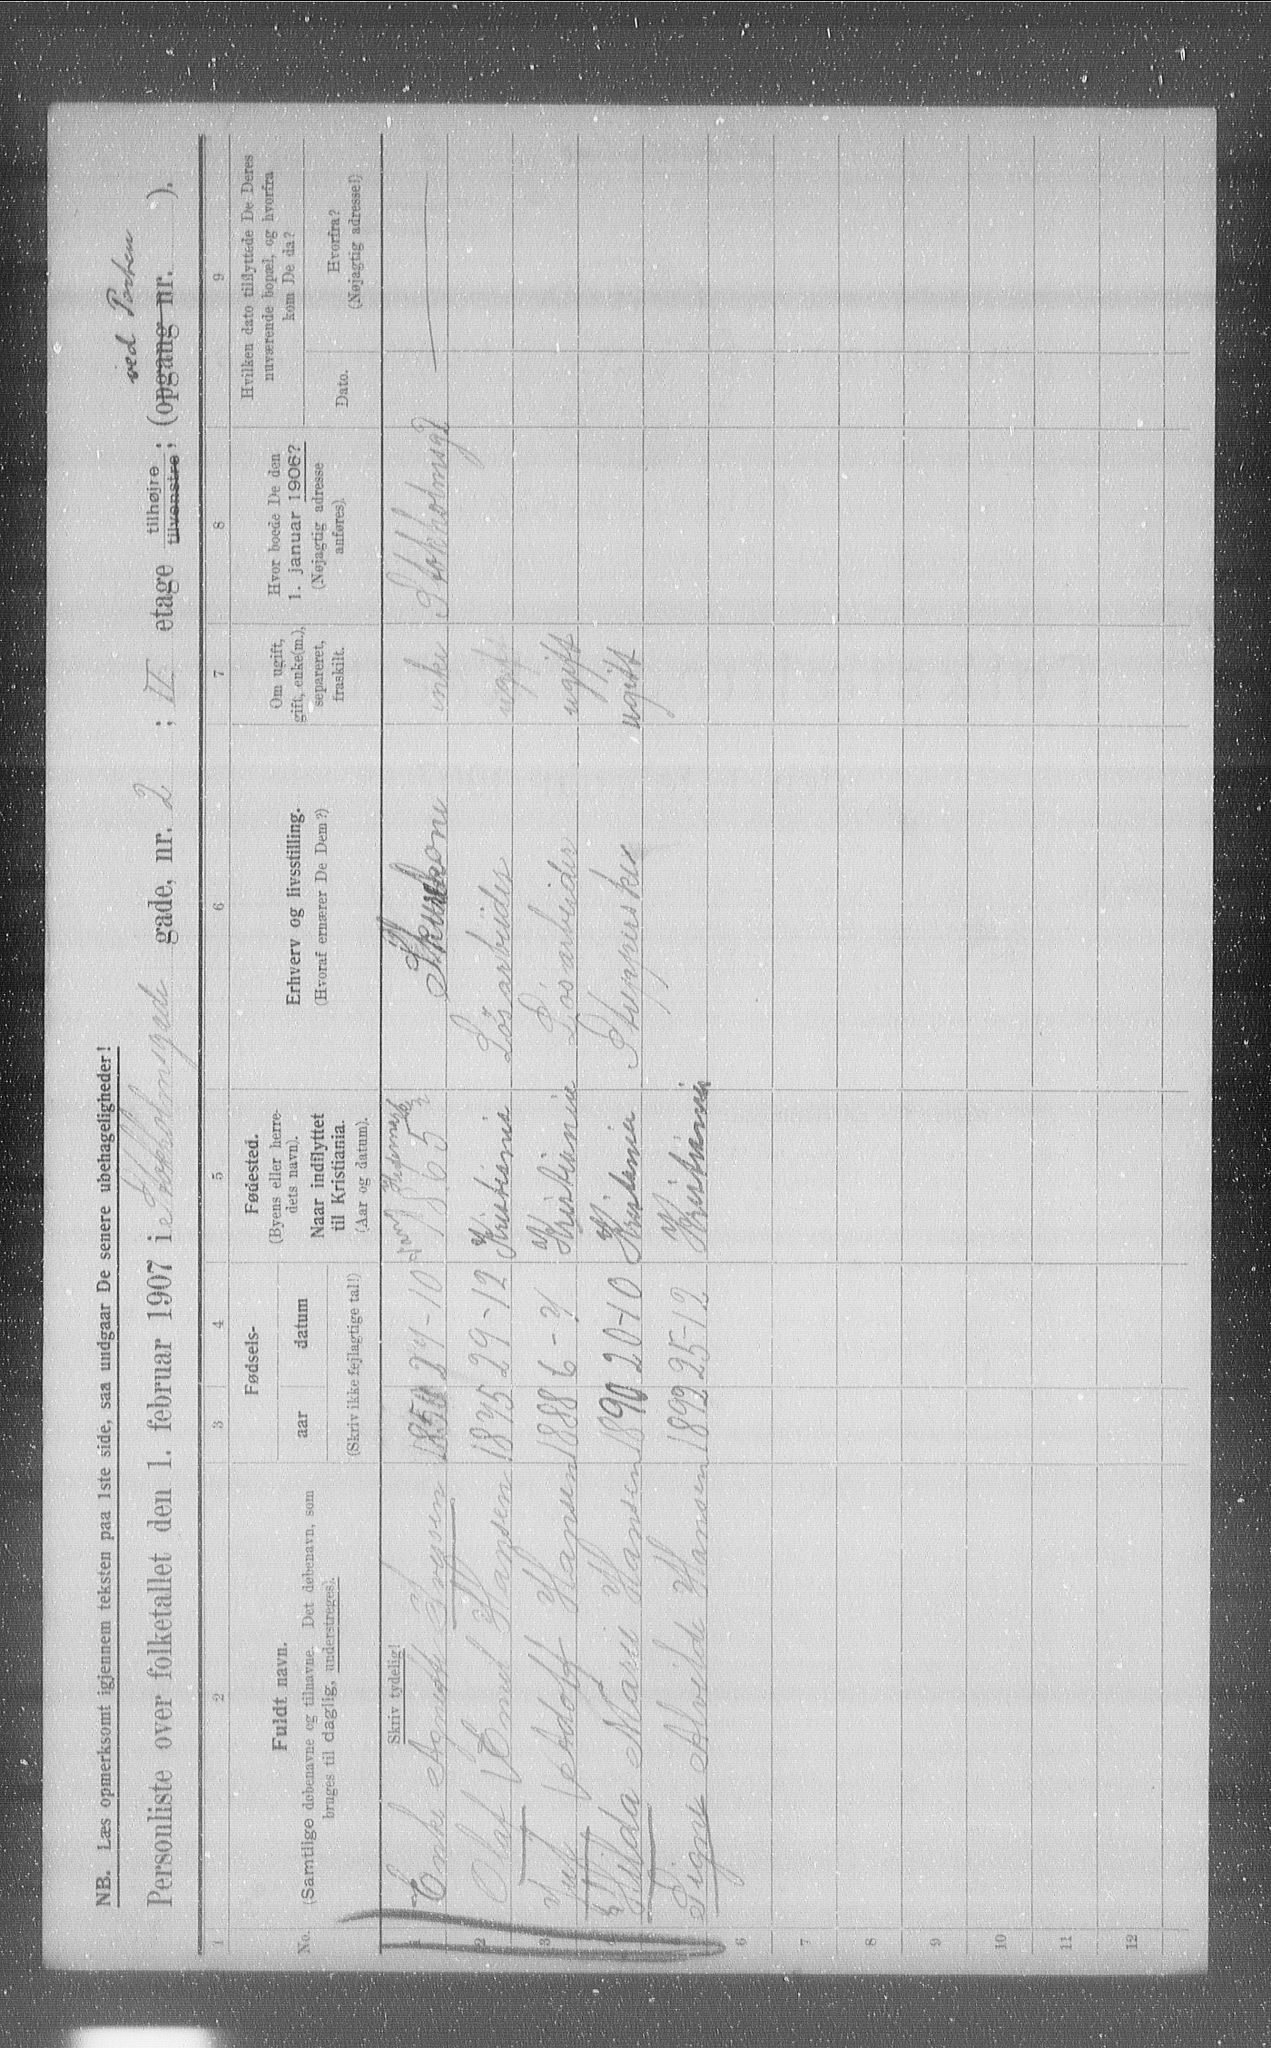 NB. Læs opmerksomt igjennem teksten paa 1ste side, saa undgaar De senere ubehageligheder!
ved Porten
Personliste over folketallet den 1. februar 1907 i Stokholmsgade gade, nr. 2 ; II etage tilhøjre tilvenstre ; (opgang nr. ).
1 2 3 4 5 6 7 8 9
No.
Fuldt navn.
(Samtlige døbenavne og tilnavne. Det døbenavn, som
bruges til daglig, understreges).
Fødsels-
aar datum
(Skriv ikke fejlagtige tal!)
Fødested.
(Byens eller herre-
dets navn).
Naar indflyttet
til Kristiania.
(Aar og datum).
Erhverv og livsstilling.
(Hvoraf ernærer De Dem?)
Om ugift,
gift, enke(m.),
separeret,
fraskilt.
Hvor boede De den
1. januar 1906?
(Nøjagtig adresse
anføres).
Hvilken dato tilflyttede De Deres
nuværende bopæl, og hvorfra
kom De da?
Dato.
Hvorfra?
(Nøjagtig adresse!)
Skriv tydelig!
1 Enke Agnethe 27-10 1865 enke Stokholmsgd
2 Olaf Emil Hansen 1875 29-12 Kristiania Løsarbeider ugift
3 Juel Adolf Hansen 1888 6-7 Kristiania Løsarbeider ugift
4 Hilda Marie Hansen 1890 20-10 Kristania ugift
5 Signe Alvilde Hansen 1892 25-12 Kristiania
6
7
8
9
10
11
12